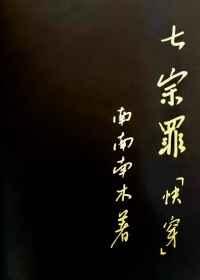 七宗罪「快穿」
南南南木著